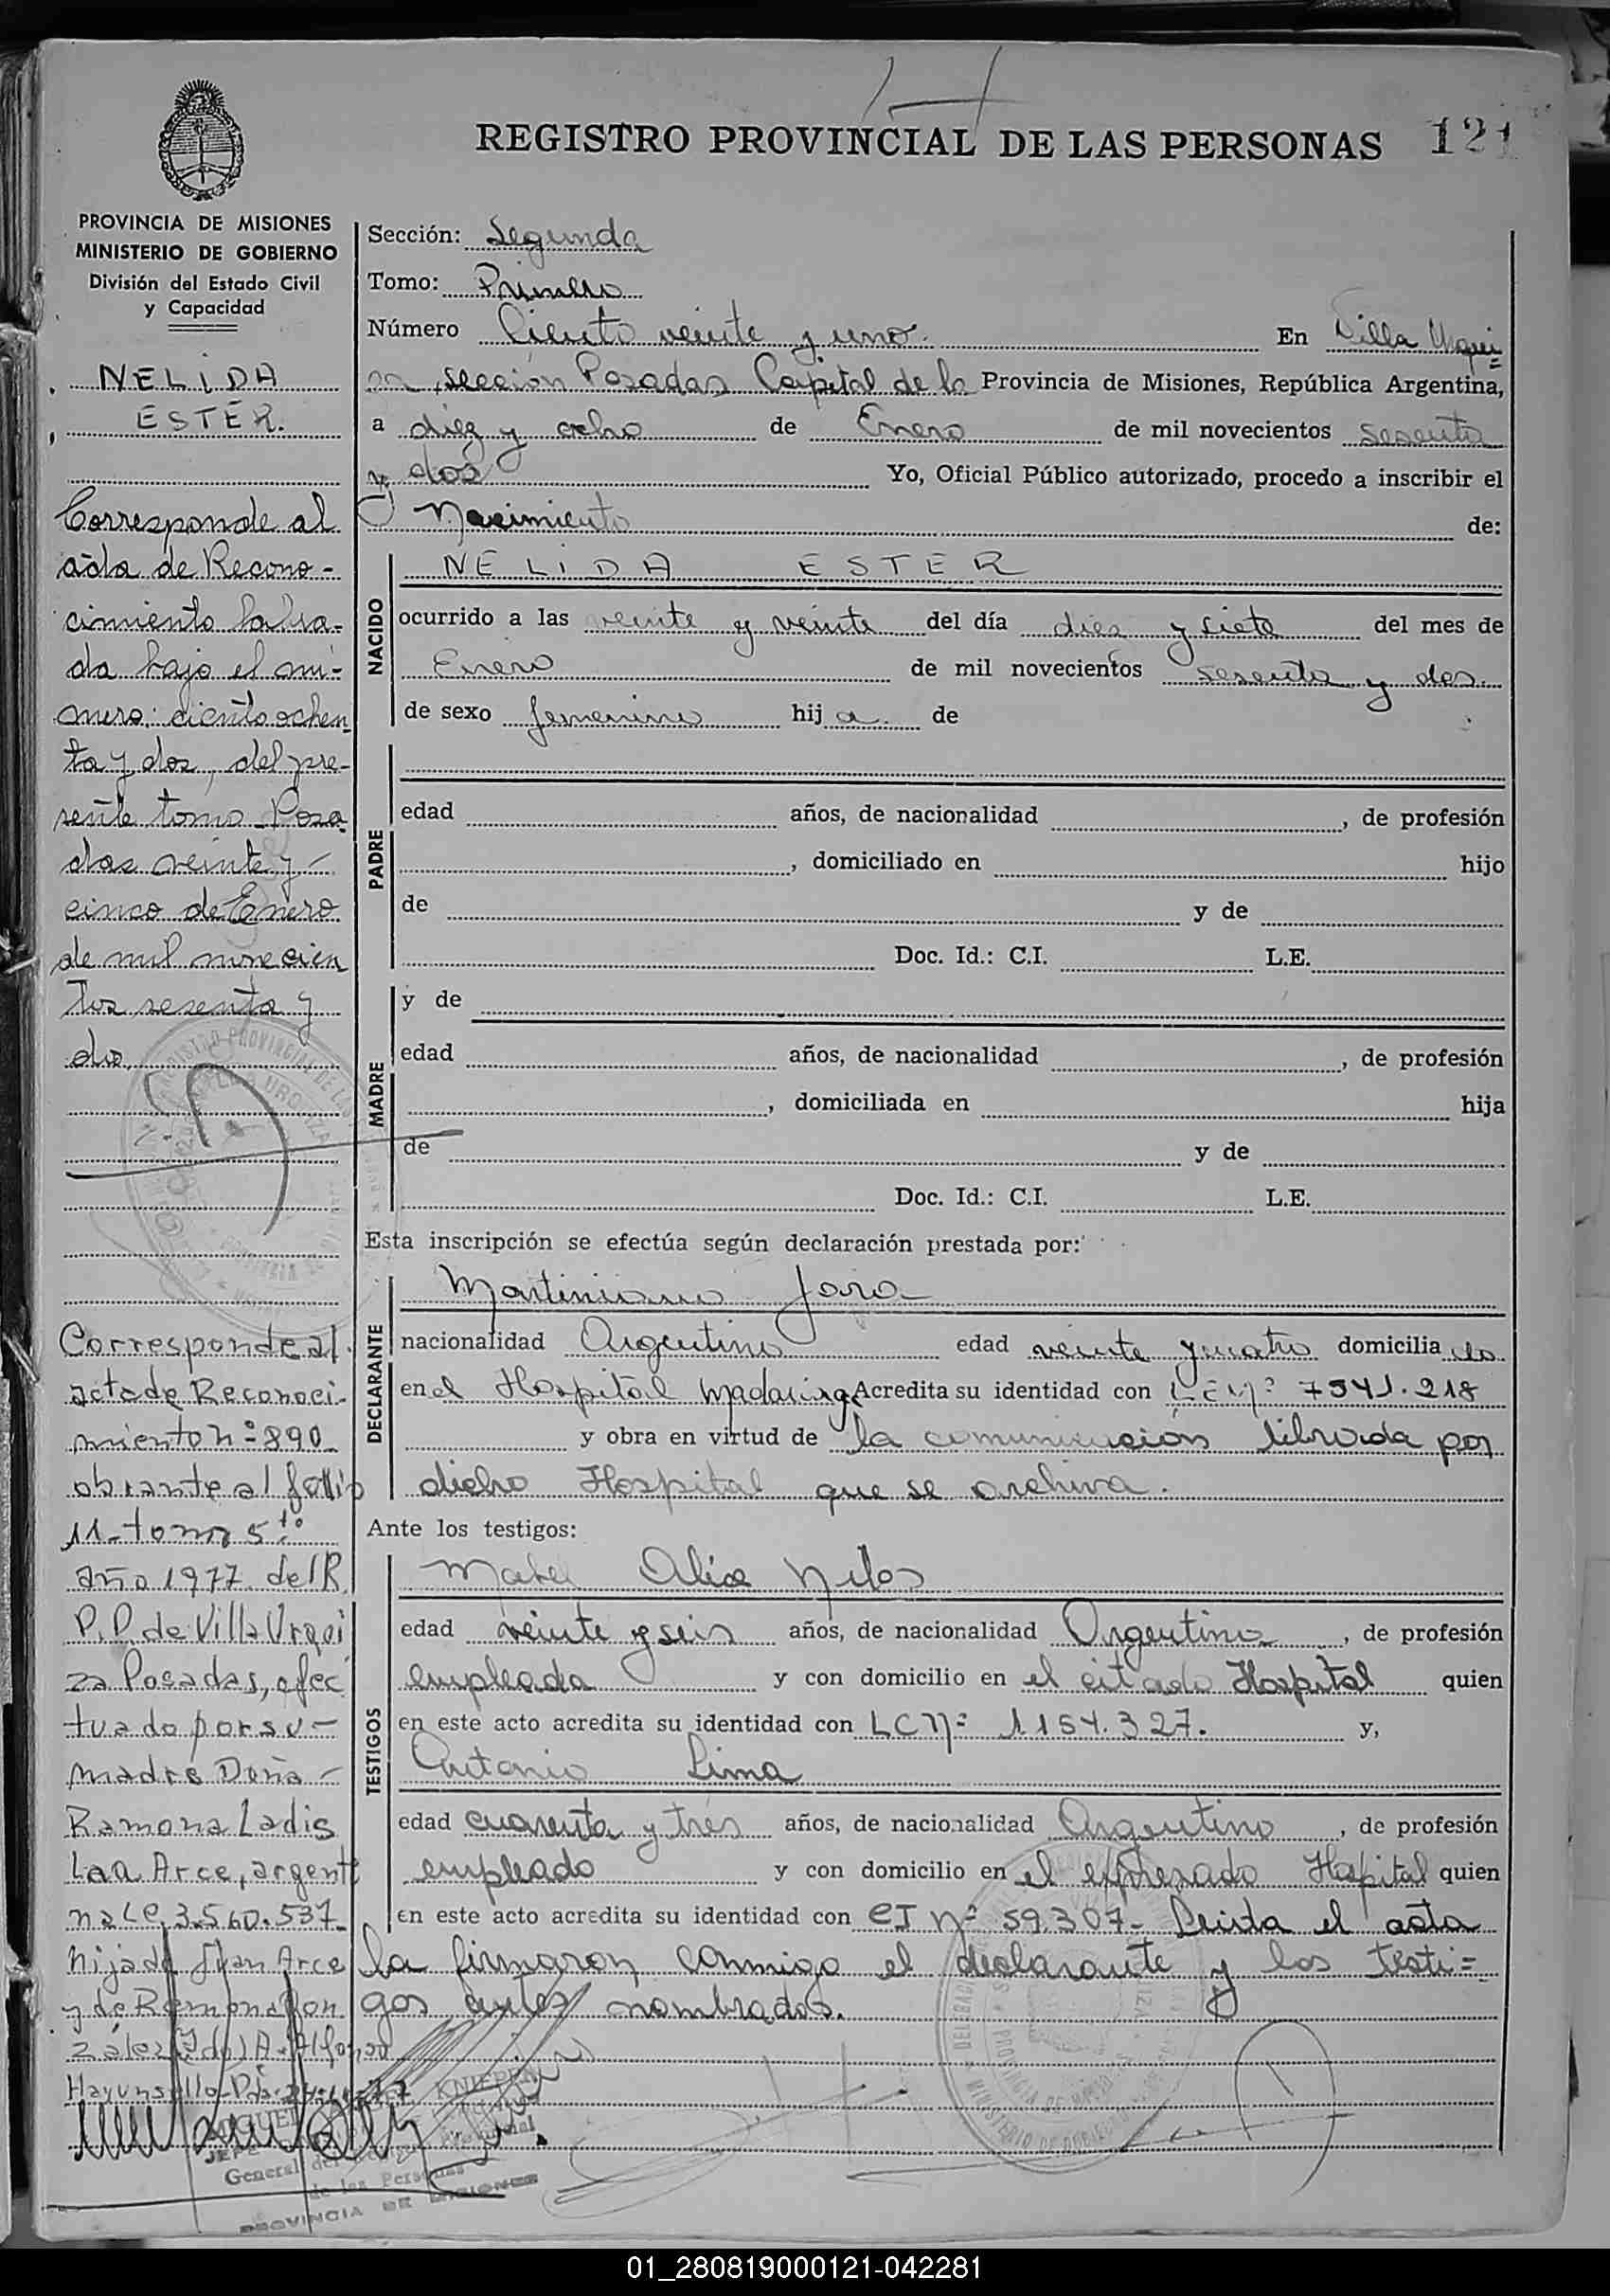 REGISTRO PROVINCIAL DE LAS PERSONAS 121
PROVINCIA DE MISIONES
MINISTERIO DE GOBIERNO
División del Estado Civil
y Capacidad
NELIDA
ESTER.
Corresponde al
acta de Recono-
cimiento labra-
da bajo el nú-
mero: ciento ochen
ta y dos, del pre-
sente tomo. Posa
das veinte y
cinco de Enero
de mil novecien
tos sesenta y
dos
Corresponde al
acta de Reconoci-
miento nº 890
obrante al folio
11- tomo 5to
año 1977 del R.
P.P. de Villa Urqui
za Posadas, efec
tuado por su-
madre Doña-
Ramona Ladis
laa Arce, argenti
na LC. 3.560.537
hija de Juan Arce
y de Ramona Gon
zález
Sección: Segunda
Tomo: Primero
Número Ciento veinte y uno. En Villa Urqui=
za, sección Posadas Capital de la Provincia de Misiones, República Argentina,
a diez y ocho de Enero de mil novecientos sesenta
y dos Yo, Oficial Público autorizado, procedo a inscribir el
Nacimiento de:
NACIDO
NELIDA ESTER
ocurrido a las veinte y veinte del día diez y siete del mes de
Enero de mil novecientos sesenta y dos.
de sexo femenino hij a. de
PADRE
edad años, de nacionalidad , de profesión
, domiciliado en hijo
de y de
Doc. Id.: C.I. L.E.
MADRE
y de
edad años, de nacionalidad , de profesión
, domiciliada en hija
de y de
Doc. Id.: C.I. L.E.
Esta inscripción se efectúa según declaración prestada por:
DECLARANTE
Martiniano Jara
nacionalidad Argentino edad veinte y cuatro domicilia do
en el Hospital Madariaga Acredita su identidad con L E Nº 7541.218
y obra en virtud de la comunicación librada por
dicho Hospital que se archiva.
Ante los testigos:
TESTIGOS
Alice
edad veinte y seis años, de nacionalidad Argentina , de profesión
empleada y con domicilio en el citado Hospital quien
en este acto acredita su identidad con LC Nº 1154.327. y,
Antonio Lima
edad cuarenta y tres años, de nacionalidad Argentino , de profesión
empleado y con domicilio en el expresado Hospital quien
en este acto acredita su identidad con CI Nº 59.307- Leída el acta
la firmaron conmigo el declarante y los testi=
gos antes nombrados.
01_280819000121-042281